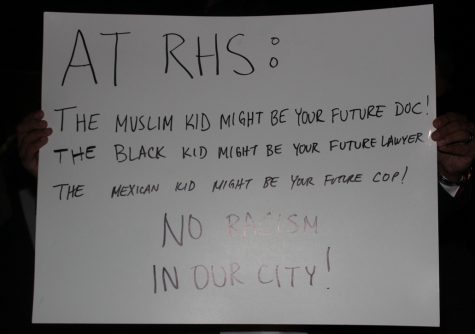 AT RHS:
THE MUSLIM KID MIGHT BE YOUR FUTURE DOC!
THE BLACK KID MIGHT BE YOUR FUTURE LAWYER
THE MEXICAN KID MIGHT BE YOUR FUTURE COP!
NO RACISM
IN OUR CITY!